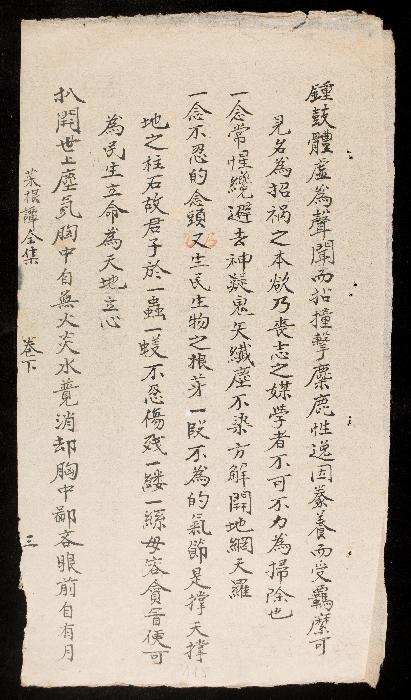 鍾鼓體虛為聲聞而招撞擊麋鹿性逸因豢養而受羈縻可
見名為招禍之本欲乃喪志之媒學者不可不力為掃除也
一念常惺纔避去神弓鬼矢纖塵不染方解開地網天羅
一念不忍的念頭又生民生物之根芽一段不為的氣節是撑天撑
地之柱石故君子於一蟲一蟻不忍傷殘一縷一絲毋容貪冒便可
為民生立命為天地立心
扒開世上塵氛胸中自無火炎水競消却胸中鄙吝眼前自有月
菜根譚全集 卷下 三